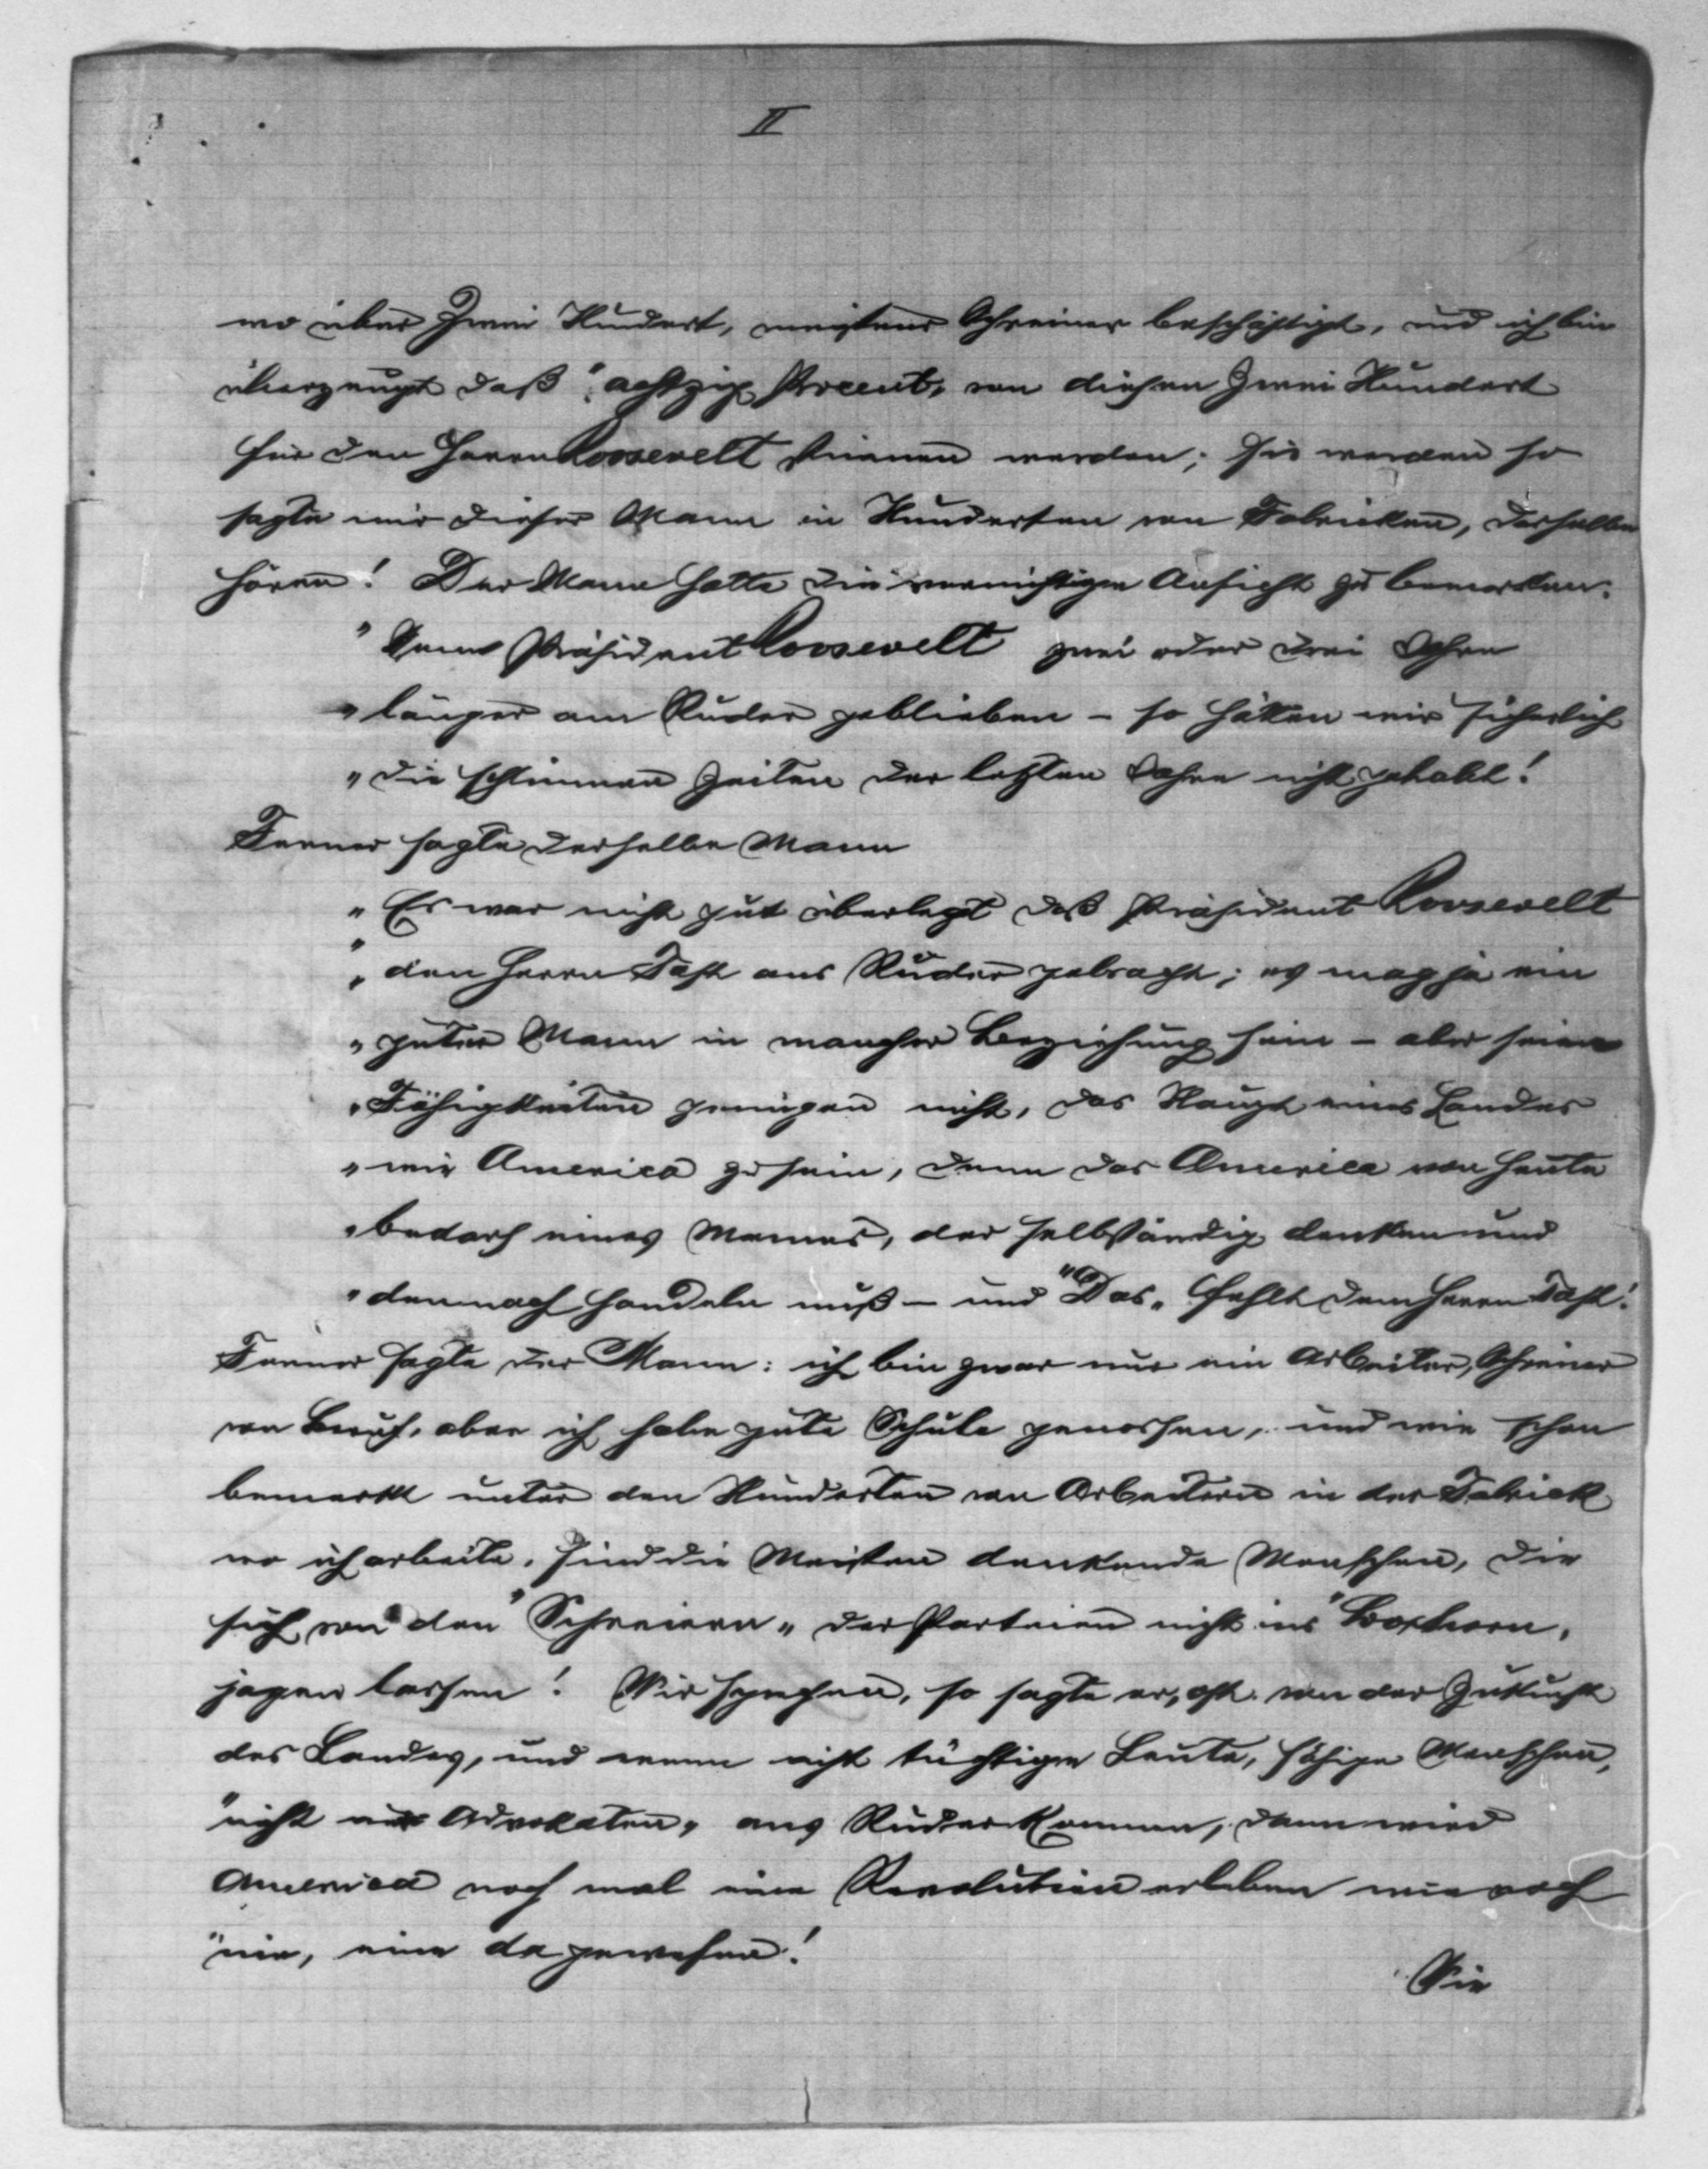 II
wo über Zwei Hundert, meistens Schreiner beschäftigt, und ich bin
überzeugt daß "achtzig Procent" von diesen Zwei Hundert
für den Herrn Roosevelt stimmen werden; Sie werden so
sagte mir dieser Mann in Hunderten von Fabricken, dasselbe
hören! Der Mann hatte die vernünftige Ansicht zu bemerken:
" Wenn Präsident Roosevelt zwei oder drei Jahre
" länger am Ruder geblieben – so hätten wir sicherlich
" die schlimmen Zeiten der letzten Jahre nicht gehabt!
Ferner sagte derselbe Mann
" Es war nicht gut überlegt daß Präsident Roosevelt
" den Herrn Taft ans Ruder gebracht; es mag ja ein
" guter Mann in mancher Beziehung sein – aber seine
" Fähigkeiten genügen nicht, das Haupt eines Landes
" wie America zu sein, denn das America von heute
" bedarf eines Mannes, der selbständig denken und
" demnach handeln muß – und "Das" fehlt dem Herrn Taft!
Ferner sagte der Mann: ich bin zwar nur ein Arbeiter, Schreiner
von Beruf, aber ich habe gute Schule genossen, und wie schon
bemerkt unter den Hunderten von Arbeitern in der Fabrick
wo ich arbeite, sind die Meisten denkende Menschen, die
sich von den "Schreiern" der Parteien nicht ins "Boxhorn"
jagen lassen! Wir sprechen, so sagte er, oft von der Zukunft
des Landes, und wenn nicht tüchtige Leute, fähige Menschen,
"nicht nur Advokaten" ans Ruder kommen, dann wird
America noch mal eine Revolution erleben wie noch
"nie, eine da gewesen!
Wie